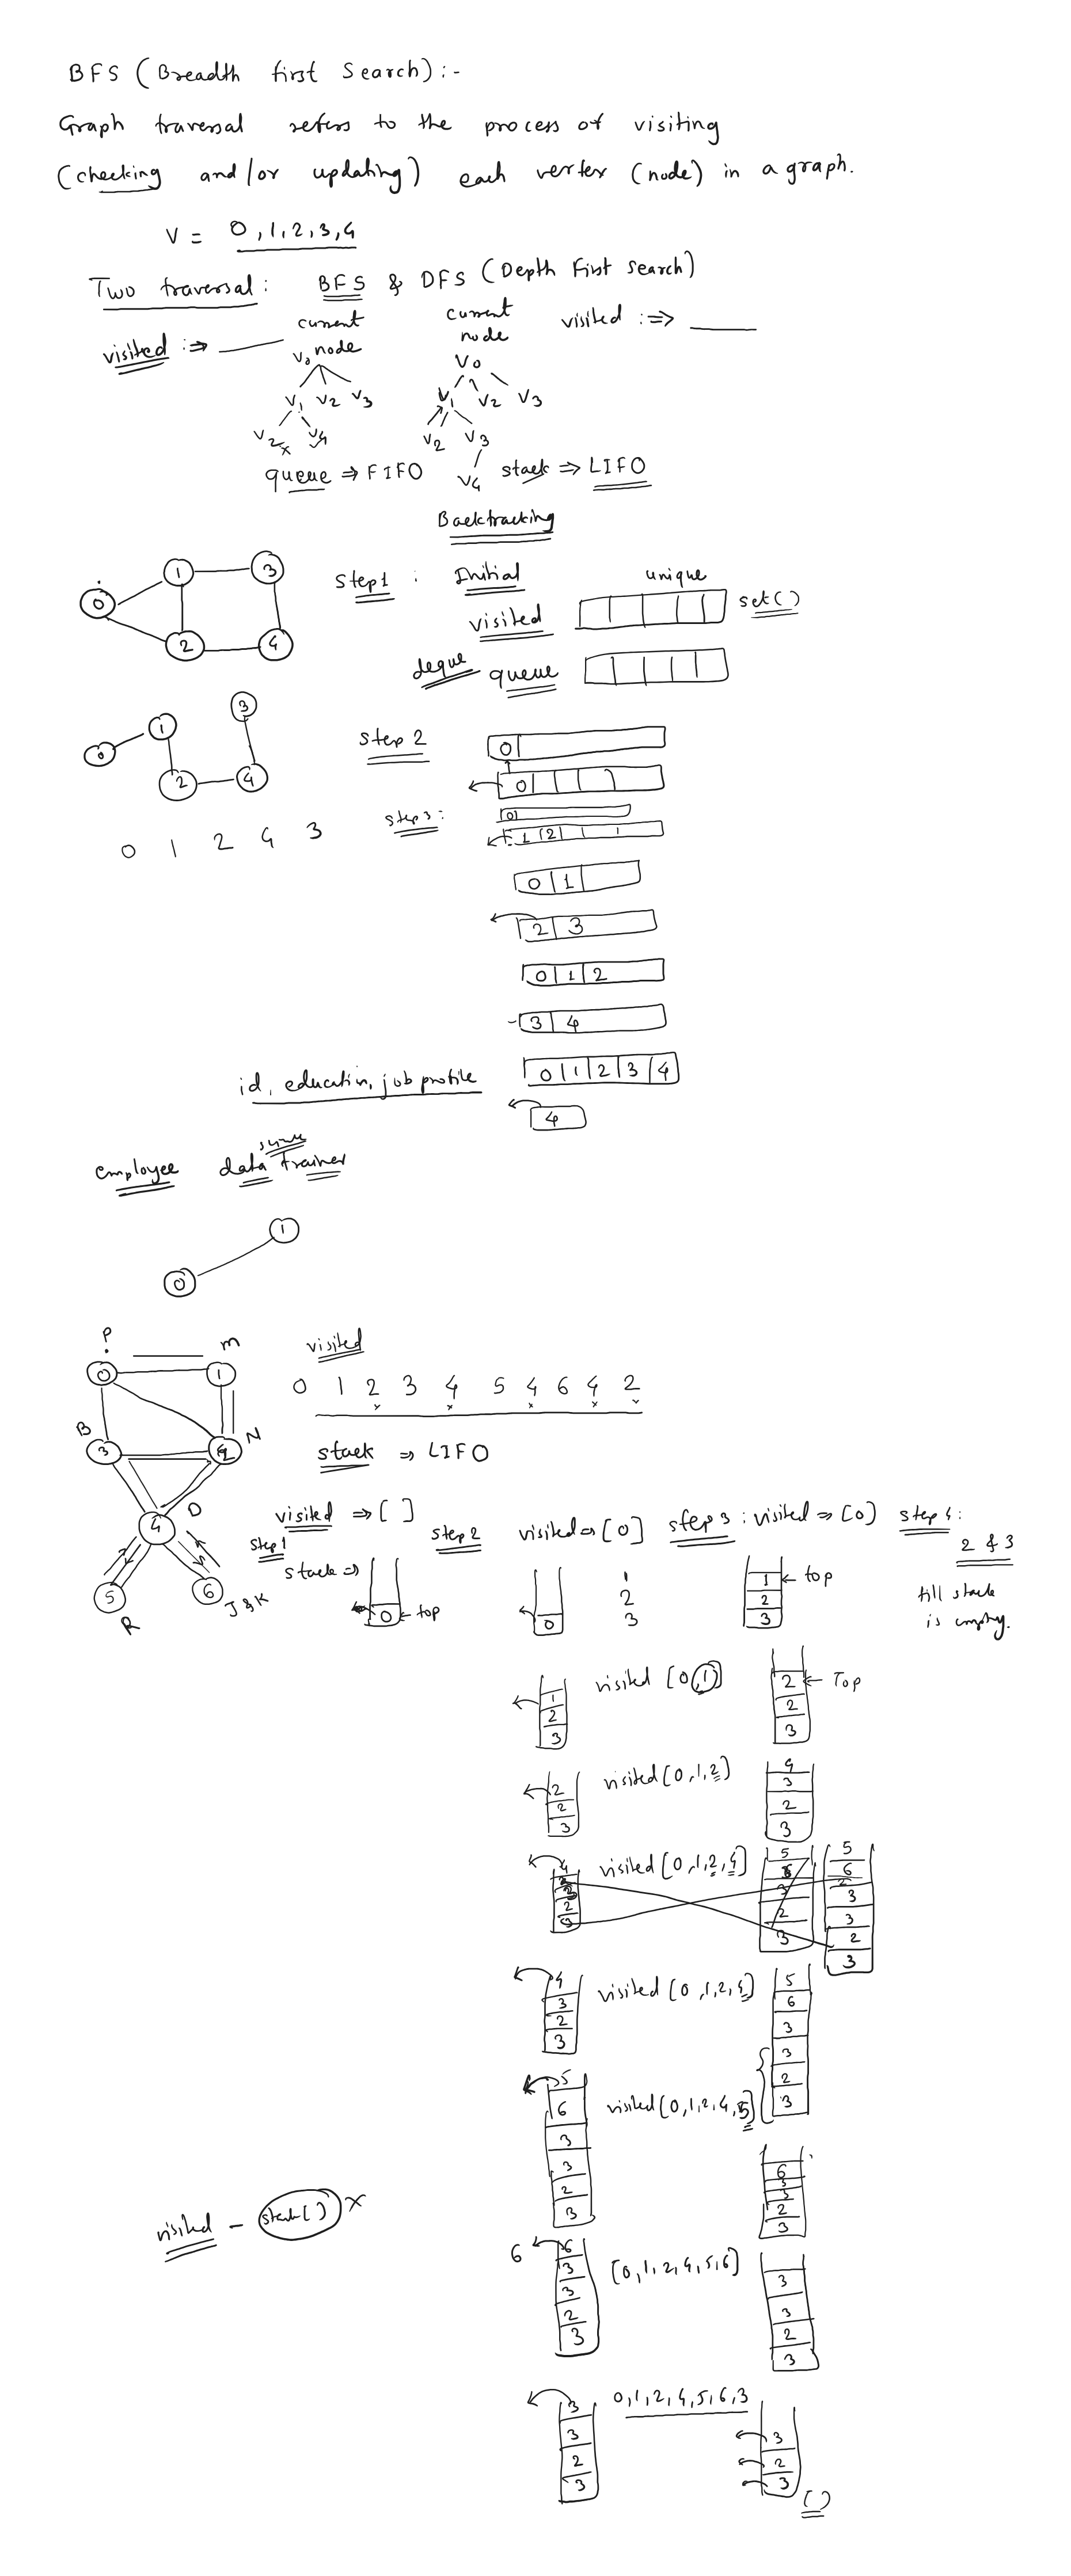 BFS (Breadth first Search):-
Graph traversal refers to the process of visiting
(checking and/or updating) each vertex (node) in a graph.
V = 0,1,2,3,4
Two traversal: BFS & DFS (Depth First Search)
visited :⇒
current node
current node
visited :⇒
V0
V1 V2 V3
V2x V4
V0
V1 V2 V3
V2 V3
V4
queue ⇒ FIFO
stack ⇒ LIFO
Backtracking
0 1 3 2 4
Step1 : Initial
unique
visited set()
deque queue
0 1 2 4 3
Step 2
0
0
0 1 2 4 3
Step 3:
0
1 2
0 1
2 3
0 1 2
3 4
id, educatin, job profile
0 1 2 3 4
4
employee data trainer
1
0
P M
0 1
B N
3
D
4
5 6
R J&K
visited
0 1 2 3 4 5 4 6 4 2
x x x
stack ⇒ LIFO
visited ⇒ [ ]
Step1
stack ⇒
0 ← top
Step2
visited ⇒ [0]
0
1
2
3
step 3 : visited ⇒ [0]
1 ← top
2
3
step 4:
2 & 3
till stack
is empty.
1
2
3
visited [0,1]
2 ← Top
2
3
2
2
3
visited [0,1,2]
4
3
2
3
4
visited [0,1,2,4]
5
2
3
5
6
3
3
2
3
4
3
2
3
visited [0,1,2,4]
5
6
3
3
2
3
5
6
3
3
2
3
visited [0,1,2,4,5]
6
3
3
2
3
visited - stack() x
6
6
3
3
2
3
[0,1,2,4,5,6]
3
3
2
3
3
3
2
3
0,1,2,4,5,6,3
3
2
3
[ ]